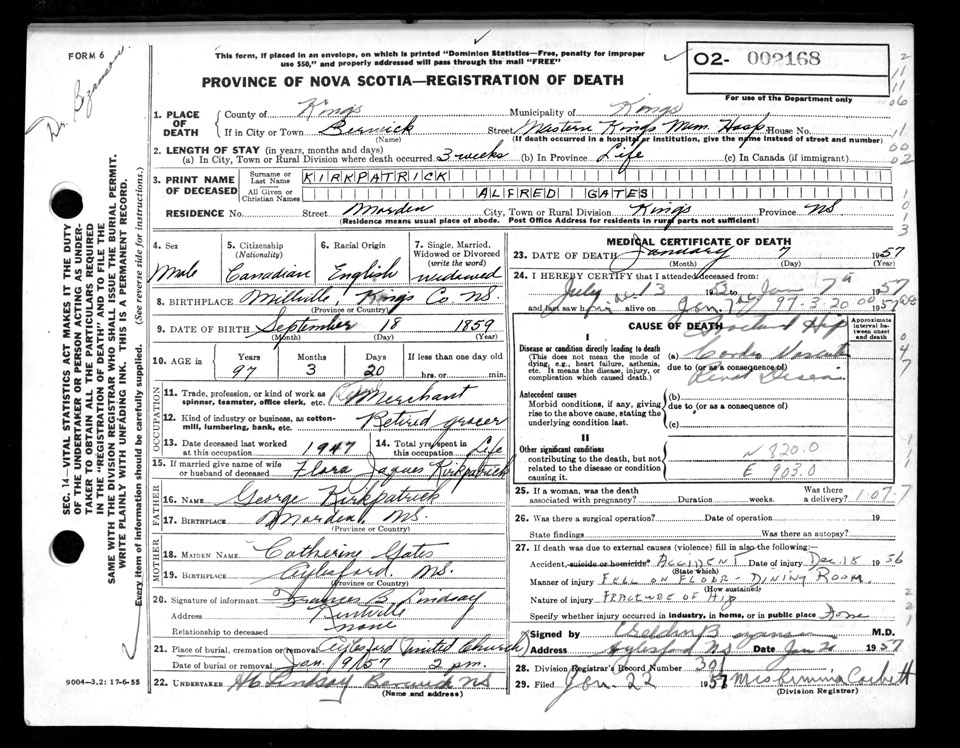 FORM 6
This form, if placed in an envelope, on which is printed "Dominion Statistics—Free, penalty for improper
use $50," and properly addressed will pass through the mail "FREE"
O2- 002168
For use of the Department only
PROVINCE OF NOVA SCOTIA—REGISTRATION OF DEATH
SEC. 14—VITAL STATISTICS ACT MAKES IT THE DUTY
OF THE UNDERTAKER OR PERSON ACTING AS UNDER-
TAKER TO OBTAIN ALL THE PARTICULARS REQUIRED
IN THE "REGISTRATION OF DEATH" AND TO FILE THE
SAME WITH THE DIVISION REGISTRAR WHO SHALL ISSUE THE BURIAL PERMIT.
WRITE PLAINLY WITH UNFADING INK. THIS IS A PERMANENT RECORD.
Every item of information should be carefully supplied. (See reverse side for instructions.)
1. PLACE OF DEATH County of Kings Municipality of Kings
If in City or Town Berwick Street Western Kings Mem. Hosp. House No.
(Name) (If death occurred in a hospital or institution, give the name instead of street and number)
2. LENGTH OF STAY (in years, months and days)
(a) In City, Town or Rural Division where death occurred 3 weeks (b) In Province Life (c) In Canada (if immigrant)
3. PRINT NAME OF DECEASED Surname or Last Name KIRKPATRICK
All Given or Christian Names ALFRED GATES
RESIDENCE No. Street Morden City, Town or Rural Division Kings Province NS
(Residence means usual place of abode. Post Office Address for residents in rural parts not sufficient)
4. Sex Male
5. Citizenship (Nationality) Canadian
6. Racial Origin English
7. Single, Married, Widowed or Divorced (write the word) widowed
8. BIRTHPLACE Millville, Kings Co. NS.
(Province or Country)
9. DATE OF BIRTH September 18 1859
(Month) (Day) (Year)
10. AGE in Years 97 Months 3 Days 20 If less than one day old hrs. or min.
OCCUPATION
11. Trade, profession, or kind of work as spinner, teamster, office clerk, etc. Merchant
12. Kind of industry or business, as cotton-mill, lumbering, bank, etc. Retired grocer
13. Date deceased last worked at 1947 14. Total yrs. spent in Life
15. If married give name of wife or husband of deceased Flora Jaques Kirkpatrick
FATHER
16. NAME George Kirkpatrick
17. BIRTHPLACE Morden, NS.
(Province or Country)
MOTHER
18. MAIDEN NAME Catherine Gates
19. BIRTHPLACE Aylesford, NS.
(Province or Country)
20. Signature of informant Frances B. Lindsay
Address Kentville
Relationship to deceased none
21. Place of burial, cremation or removal Aylesford United Church
Date of burial or removal Jan. 9/57 2 pm.
22. UNDERTAKER Lindsay Berwick NS
(Name and address)
9004-3.2: 17-6-55
MEDICAL CERTIFICATE OF DEATH
23. DATE OF DEATH January 7 1957
(Month) (Day) (Year)
24. I HEREBY CERTIFY that I attended deceased from:
July 13 to Jan 7th 1957
and last saw him alive on Jan 7 1957
CAUSE OF DEATH
Approximate interval between onset and death
I
Disease or condition directly leading to death
(This does not mean the mode of dying, e.g., heart failure, asthenia, etc. It means the disease, injury, or complication which caused death.)
(a) Cardio Vascular
due to (or as a consequence of)
Renal Disease
Antecedent causes
Morbid conditions, if any, giving rise to the above cause, stating the underlying condition last.
(b)
due to (or as a consequence of)
(c)
II
Other significant conditions
contributing to the death, but not related to the disease or condition causing it.
N 820.0
E 903.0
25. If a woman, was the death associated with pregnancy? Duration weeks. Was there a delivery?
26. Was there a surgical operation? Date of operation 19
State findings Was there an autopsy?
27. If death was due to external causes (violence) fill in also the following:—
Accident, suicide or homicide? ACCIDENT Date of injury Dec. 18 1956
(State which)
Manner of injury FELL ON FLOOR - DINING ROOM.
(How sustained)
Nature of injury FRACTURE OF HIP
Specify whether injury occurred in industry, in home, or in public place Home
Signed by M.D.
Address Aylesford NS Date Jan 1957
28. Division Registrar's Record Number 301
29. Filed Jan 22 1957 Mrs Corbett
(Division Registrar)